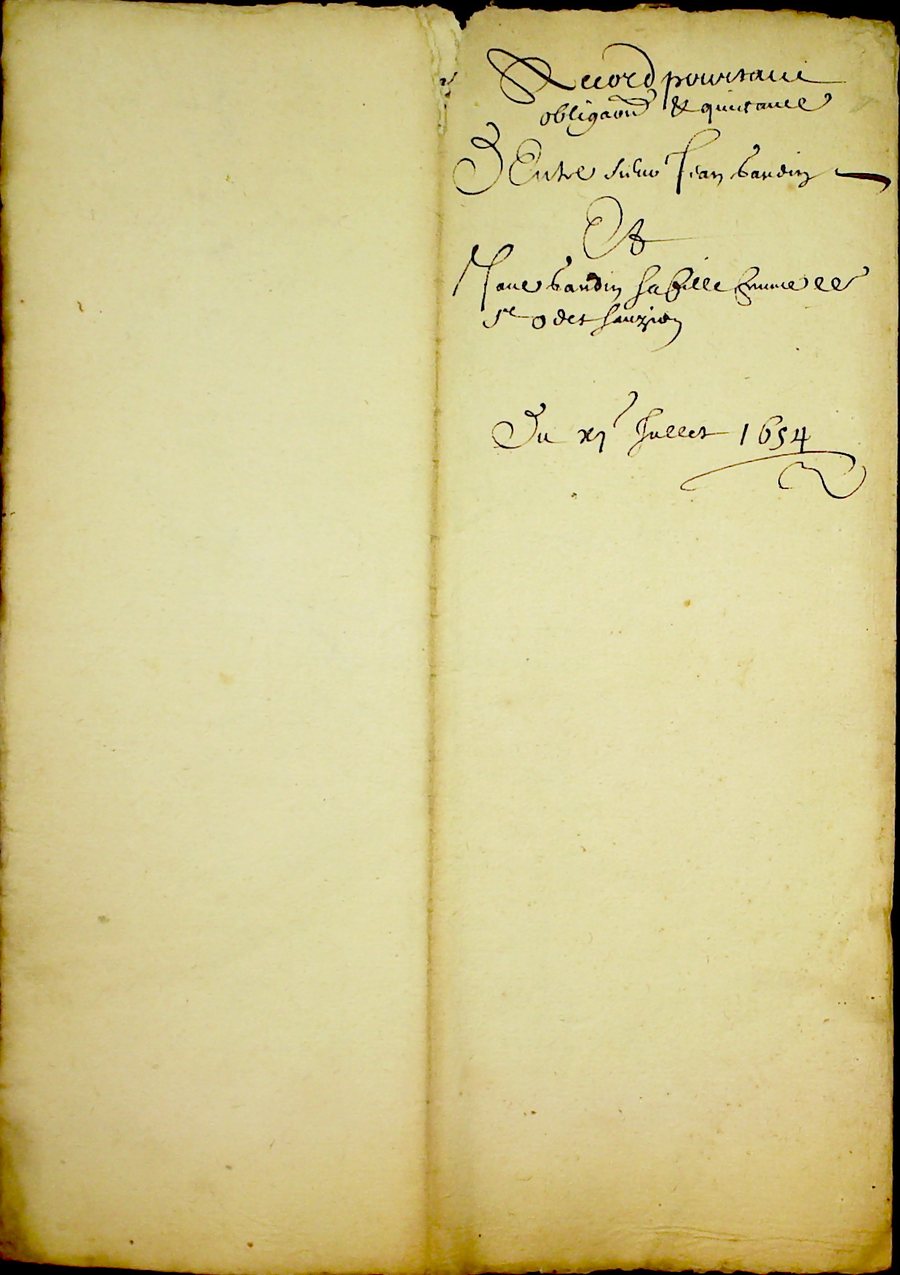 Accord pourtant
obligaon & quictance
D'Entre sieur Jean bardin
Et
Jane bardin sa fille femme de
sr odet
Du xj Juillet 1654